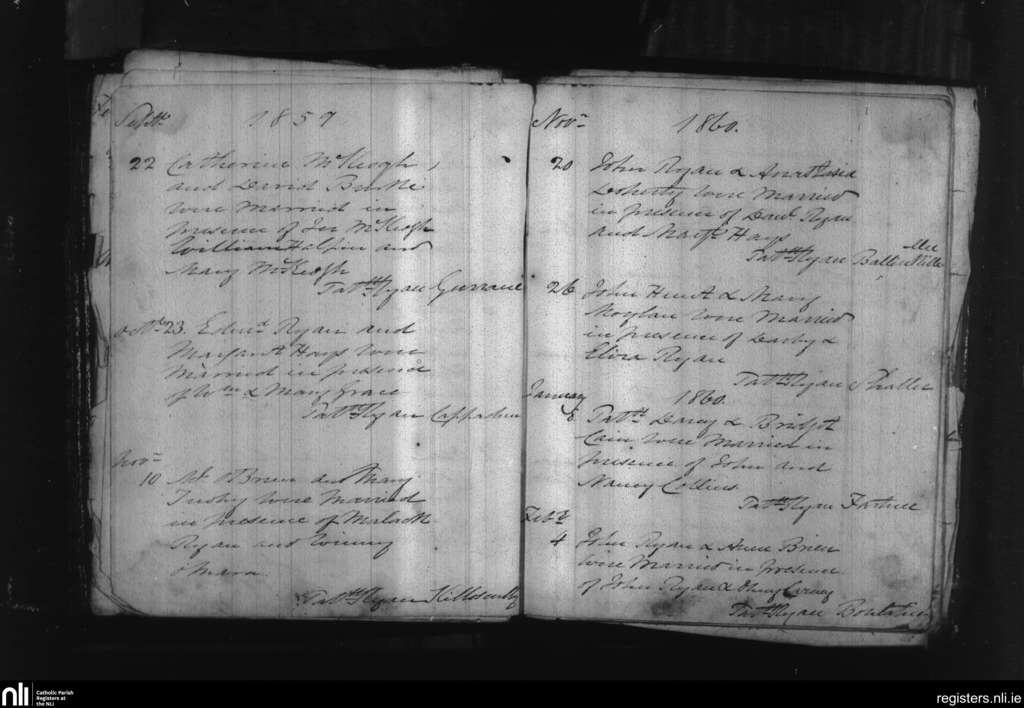 Septr. 1857
22 Catherine McKeogh,
and David Burke
were married in
presence of Jer McKeogh
William Halpin and
Mary McKeogh
Patk. Ryan Gurrane
Octr. 23. Edmd. Ryan and
Margaret Hays were
Married in presence
of Wm. & Mary Grace
Patk. Ryan Cappa
Novr.
10 Mt. OBrien and Mary
were married
in presence of Malachi
Ryan and Winny
oMara.
Patt. Ryan
Novr. 1860.
20 John Ryan & Anastasia
Doherty were Married
in presence of Danl. Ryan
and Margt. Hays
Patk. Ryan
26 John Hunt & Mary
Moylan were Married
in presence of Darby &
Eliza Ryan
Patk. Ryan Shallee
January 1860.
8. Patk. Darcy & Bridget
Cain were Married in
presence of John and
Nancy Collins
Patk. Ryan
Feby.
4 John Ryan & Anne Brien
were Married in presence
of John Ryan &
Patk. Ryan
nli
Catholic Parish
Registers at
the NLI
registers.nli.ie